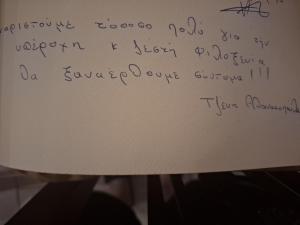 τόσοσο πολύ για την
υπέροχη κ ζεστή φιλοξενία
θα ξαναέρθουμε σύντομα!!!
Τζένη